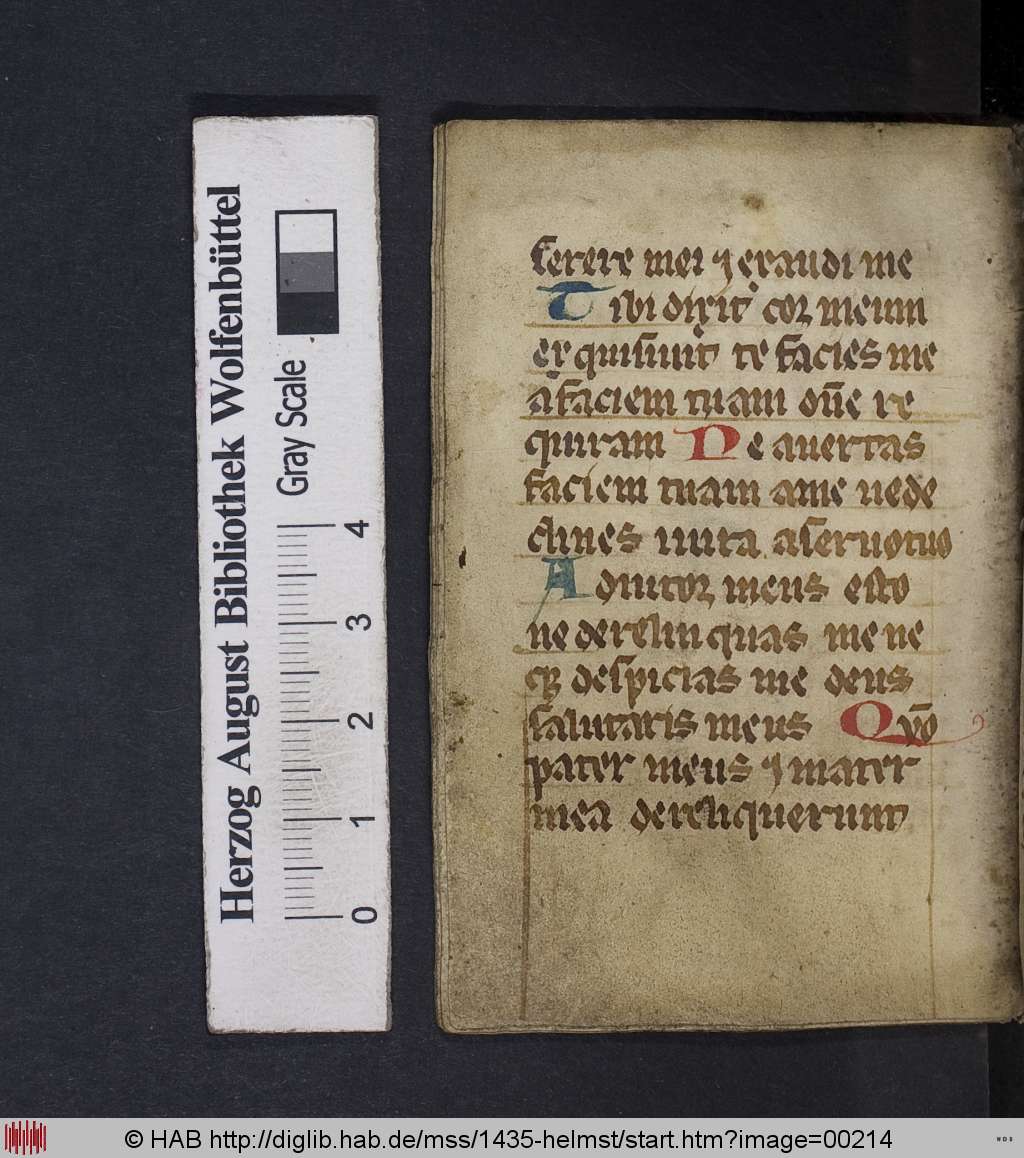 Herzog August Bibliothek Wolfenbüttel
Gray Scale
0 1 2 3 4
serere mei ⁊ exaudi me
Tibi dixit coꝛ meum
exquisiuit te facies me
a faciem tuam dn̄e re
quiram Ne auertas
faciem tuam a me ne de
clines in ira a seruo tuo
Adiutoꝛ meus esto
ne derelinquas me ne
qꝫ despicias me deus
salutaris meus Qm̄
pater meus ⁊ mater
mea dereliquerunt
© HAB http://diglib.hab.de/mss/1435-helmst/start.htm?image=00214